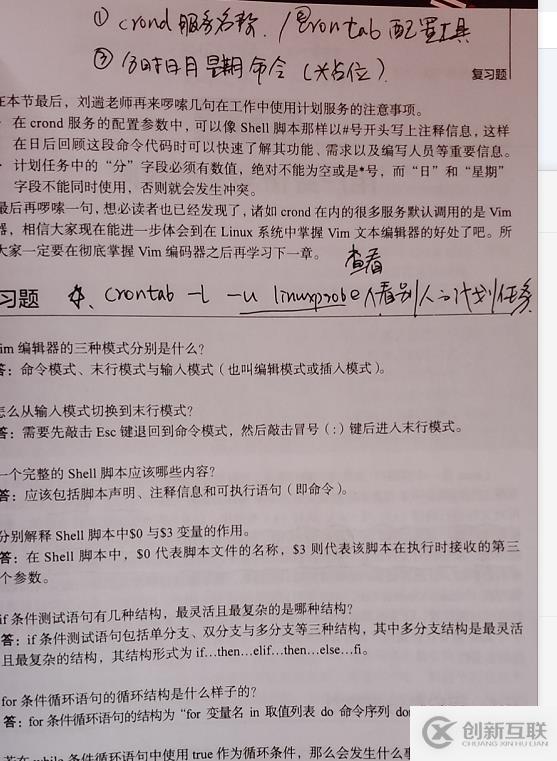 ① crond 服务名称. / crontab 配置工具
③ 分时日月星期 命令 (*占位).
复习题
在本节最后，刘遄老师再来啰嗦几句在工作中使用计划服务的注意事项。
在 crond 服务的配置参数中，可以像 Shell 脚本那样以#号开头写上注释信息，这样
在日后回顾这段命令代码时可以快速了解其功能、需求以及编写人员等重要信息。
计划任务中的“分”字段必须有数值，绝对不能为空或是*号，而“日”和“星期”
字段不能同时使用，否则就会发生冲突。
最后再啰嗦一句，想必读者也已经发现了，诸如 crond 在内的很多服务默认调用的是 Vim
器，相信大家现在能进一步体会到在 Linux 系统中掌握 Vim 文本编辑器的好处了吧。所
大家一定要在彻底掌握 Vim 编码器之后再学习下一章。
查看
习题
crontab -l -u linuxprobe 看别人的计划任务
im 编辑器的三种模式分别是什么？
答：命令模式、末行模式与输入模式（也叫编辑模式或插入模式）。
怎么从输入模式切换到末行模式？
答：需要先敲击 Esc 键退回到命令模式，然后敲击冒号（:）键后进入末行模式。
一个完整的 Shell 脚本应该哪些内容？
答：应该包括脚本声明、注释信息和可执行语句（即命令）。
分别解释 Shell 脚本中$0 与$3 变量的作用。
答：在 Shell 脚本中，$0 代表脚本文件的名称，$3 则代表该脚本在执行时接收的第三
个参数。
if 条件测试语句有几种结构，最灵活且最复杂的是哪种结构？
答：if 条件测试语句包括单分支、双分支与多分支等三种结构，其中多分支结构是最灵活
且最复杂的结构，其结构形式为 if…then…elif…then…else…fi。
for 条件循环语句的循环结构是什么样子的？
答：for 条件循环语句的结构为“for 变量名 in 取值列表 do 命令序列 don
若在 while 条件循环语句中使用 true 作为循环条件，那么会发生什么事
创新互联
CHUANG XIN HU LIAN